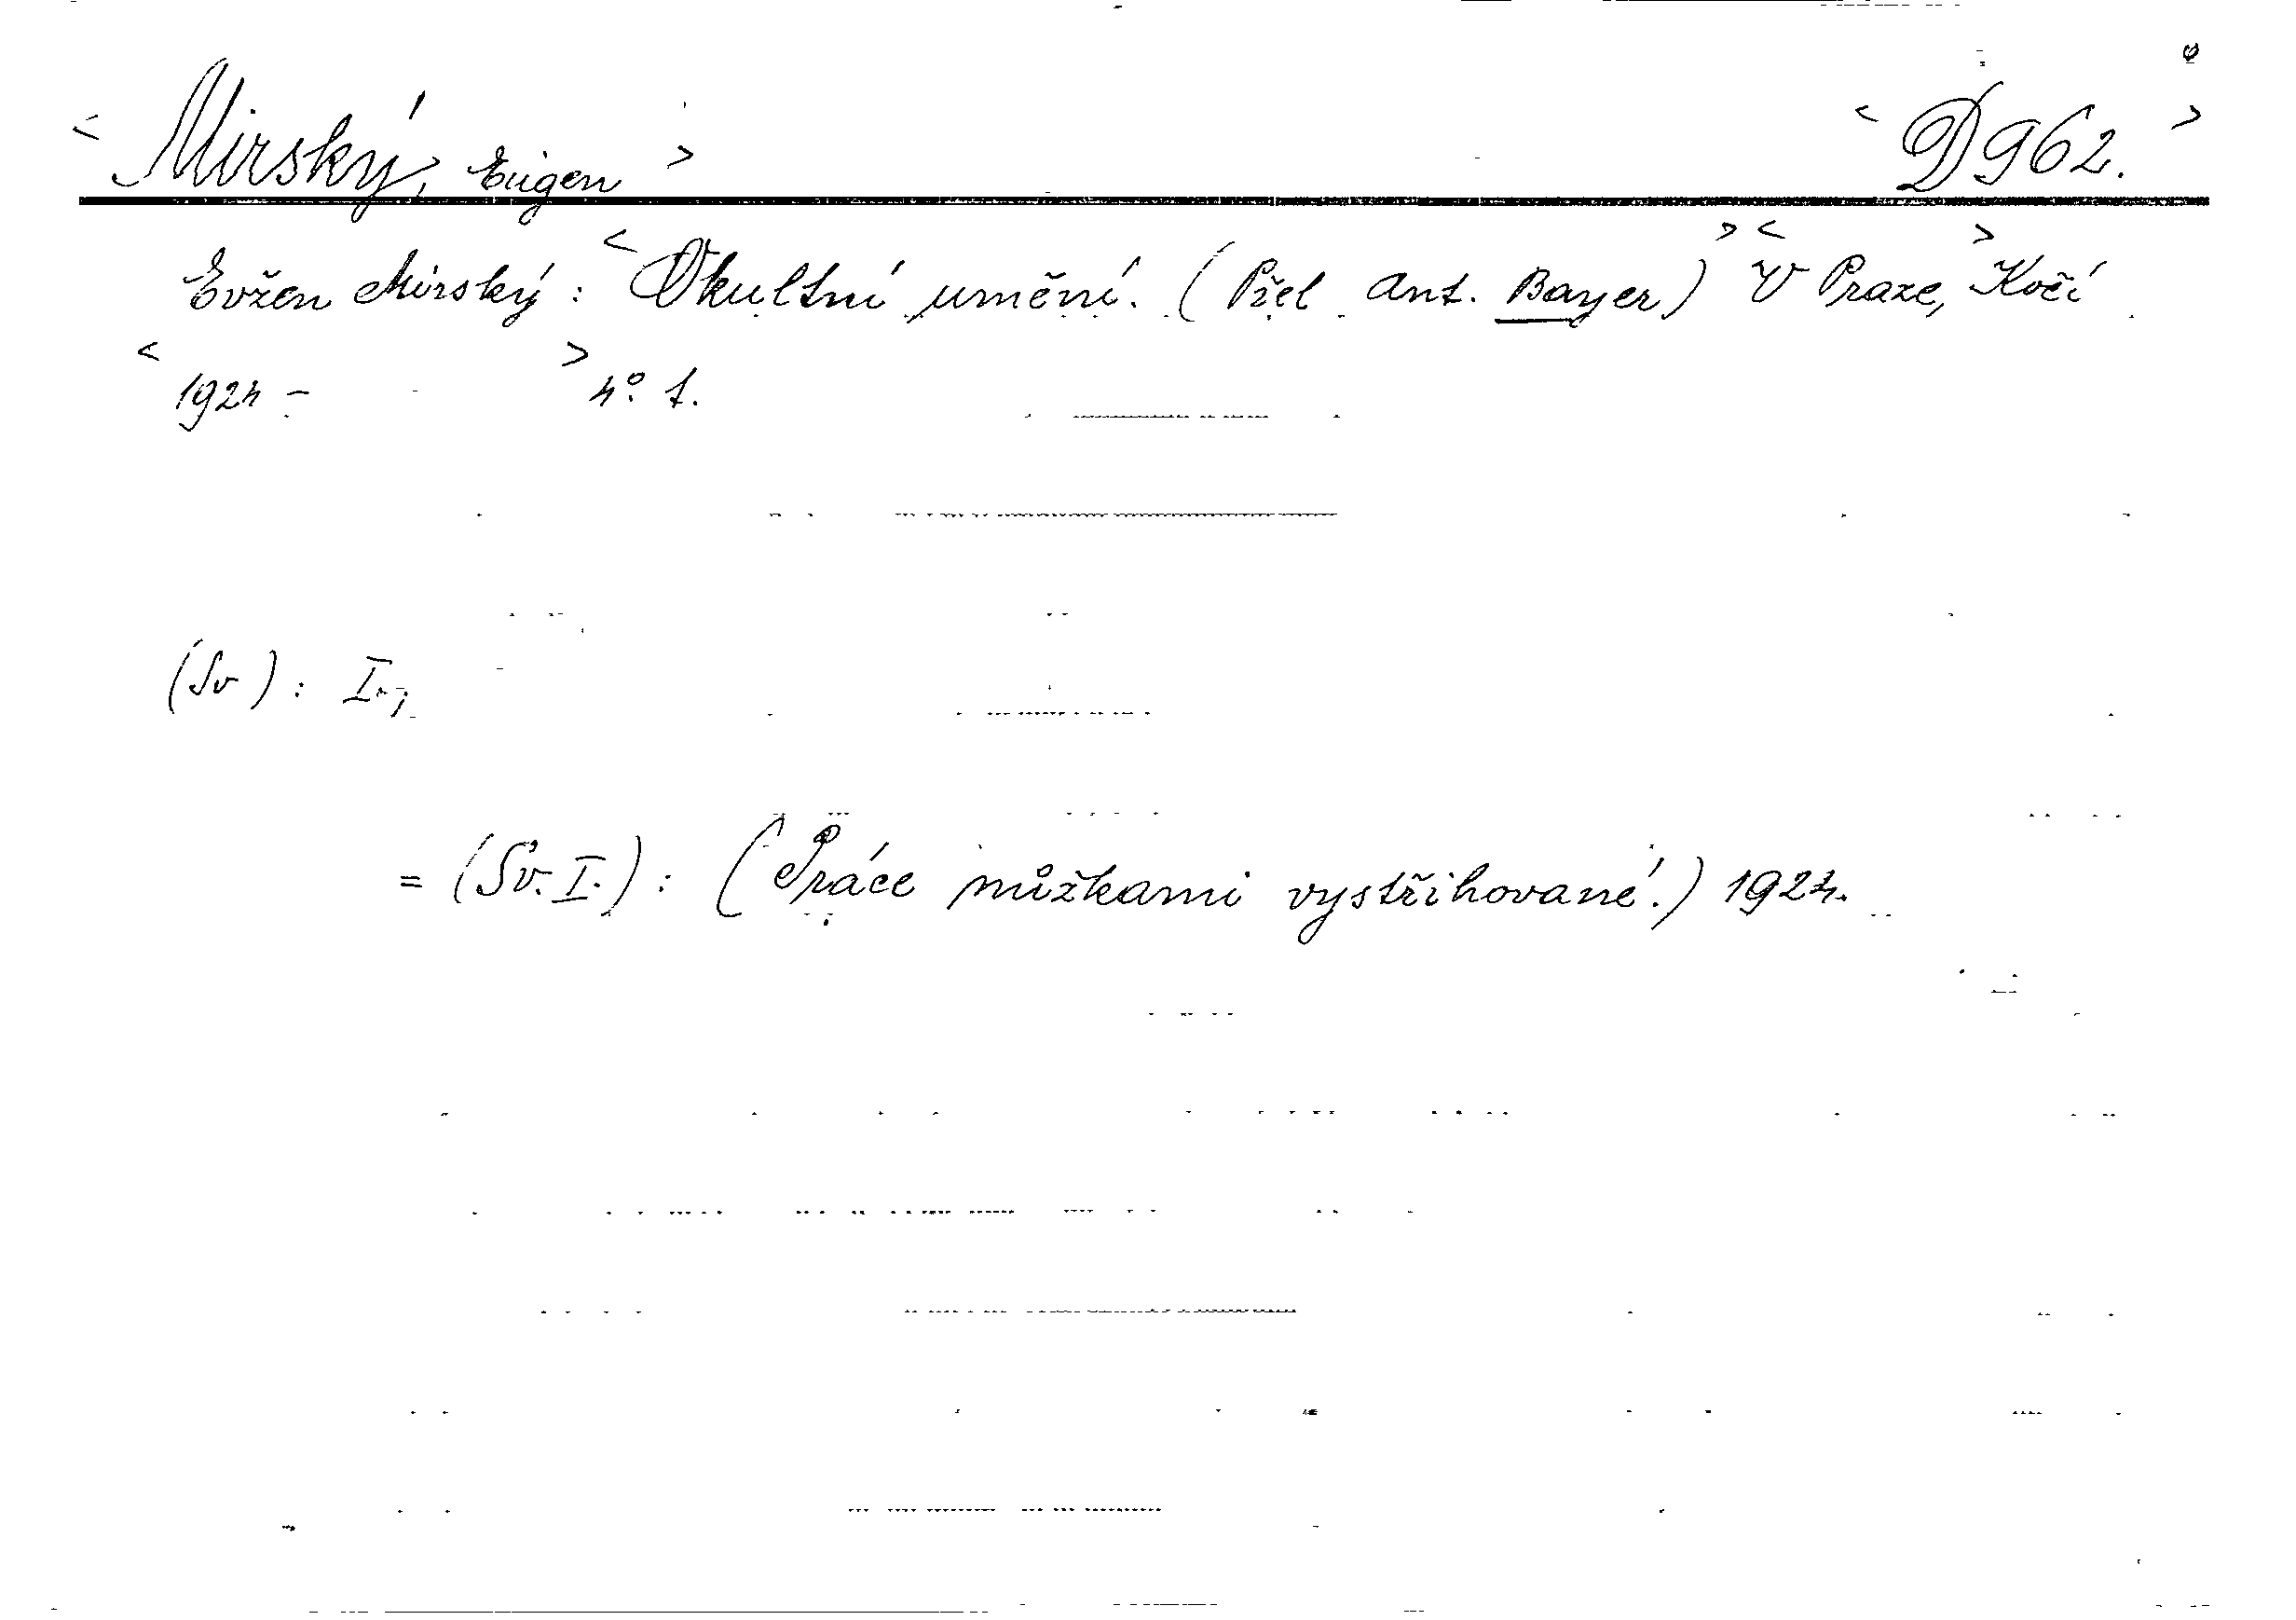 < Mirský, Eugen > < D 962. >
Evžen Mirský: < Okultní umění. (Přel. Ant. Bayer) > < V Praze, > Kočí
< 1924 - > 4° f.
(Sv): I.,
= (Sv. I.): (Práce nůžkami vystřihované.) 1924.